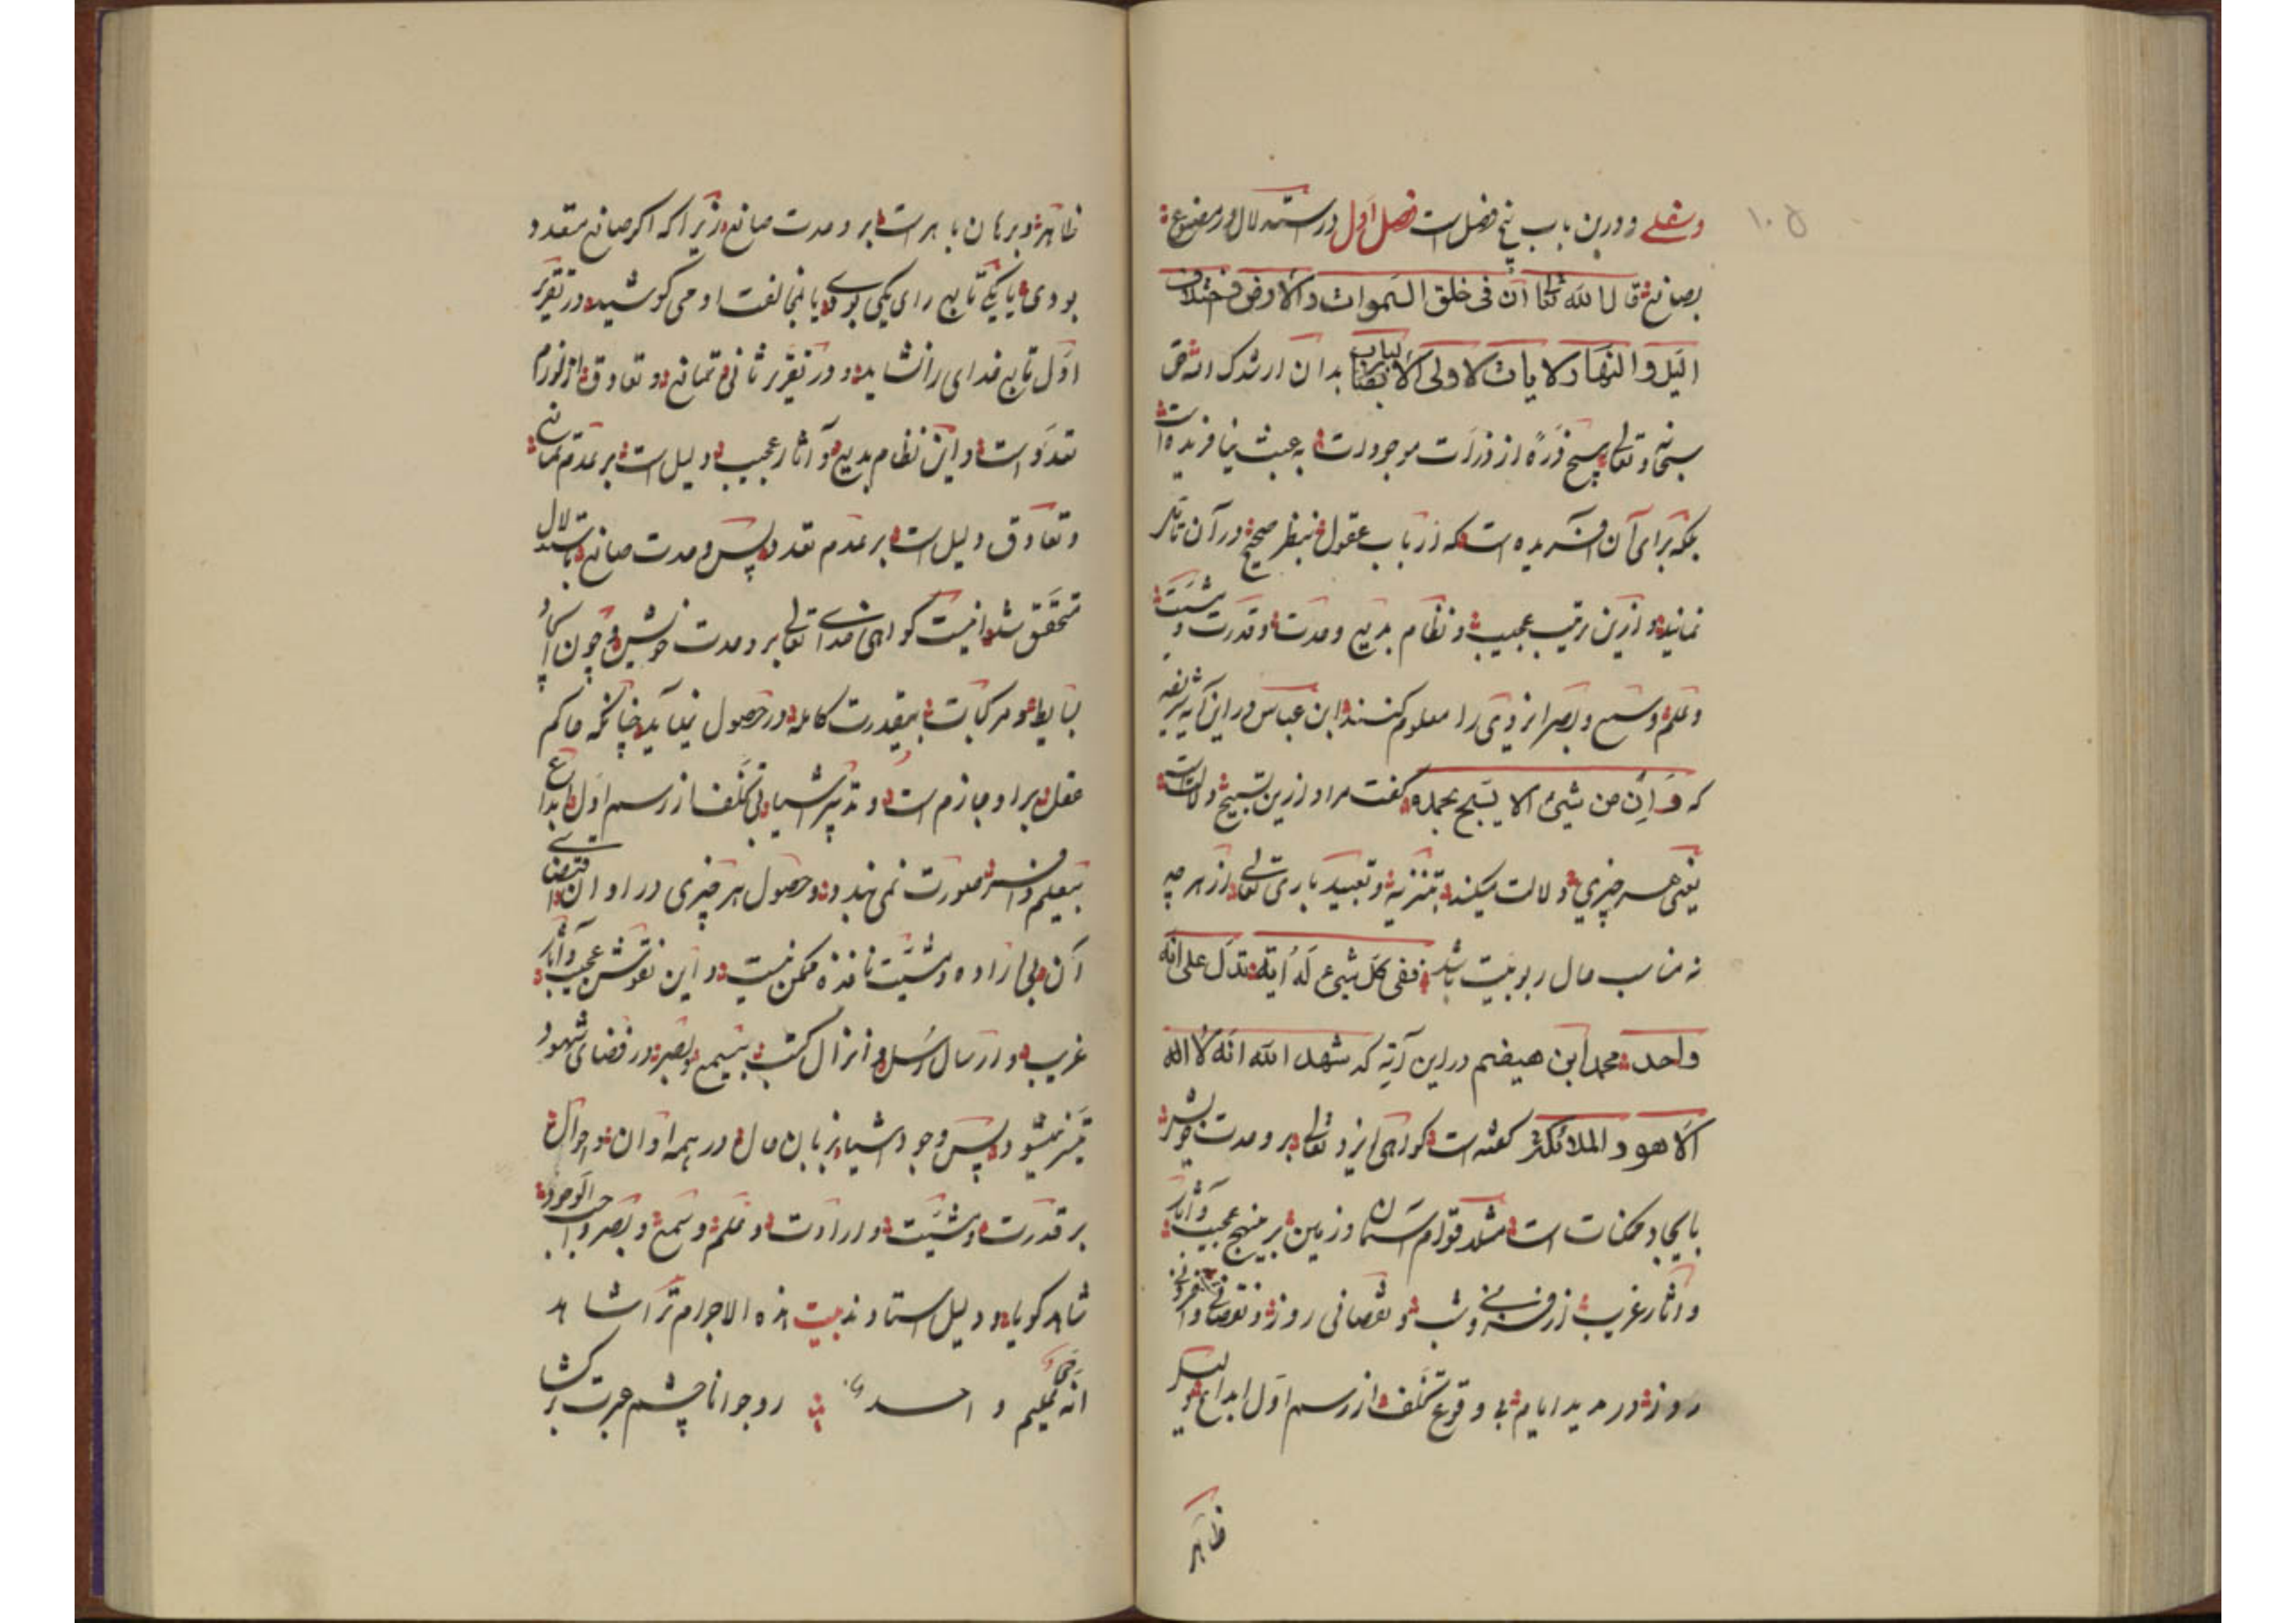 وسفلی و درین باب پنج فصل است فصل اول در استدلال از مصنوع
بصانع قال الله تعا ان فی خلق السموات والارض واختلاف
الیل والنهار لایات لاولی الالباب بدان ارشدک الله که حق
سبحانه و تعالی هیچ ذرهٔ از ذرات موجودات به عبث نیافریده است
بلکه برای آن آفریده است که ارباب عقول بنظر صحیح در آن تأمّل
نمایند و ازین ترتیب عجیب و نظام بدیع وحدت و قدرت و مشیت
و علم و سمع و بصر ایزدی را معلوم کنند ابن عباس در این آیه شریفه
که وَاِن من شیئ الا یسبح بحمده گفت مراد ازین تسبیح دلالت است
یعنی هر چیزی دلالت میکند بتنزیه و تبعید باری تعالی از هر چه
نه مناسب حال ربوبیت باشد ففی کل شیئ له ایة تدل علی انه
واحد محمد ابن هیضم در این آیه که شهد الله انه لا اله
الا هو والملائکة گفته است گواهی ایزد تعالی بر وحدت خویش
بایجاد ممکنات است مثلا قوام آسمان و زمین بر منهج عجیب و آثار
و آثار غریب از افزونی شب و نقصانی روز و نقصانی و افزونی
روز در مدید ایام بی وقوع تخلف از رسم اول ابداع دلیل
ظاهر
ظاهر و برهان باهر است بر وحدت صانع زیرا که اگر صانع متعدد
بودی یا یکی تابع رای یکی بودی یا بمخالفت او می کوشید در تقریر
اوّل تابع خدای را نشاید و در تقریر ثانی تمانع و تعاوق از لوازم
تعدد است و این نظام بدیع و آثار عجیب دلیل است بر عدم تمانع
و تعاوق دلیل است بر عدم تعدد پس وحدت صانع باستدلال
متحقق شد اینست گواهی خدای تعالی بر وحدت خویش و چون ایجاد
بسایط و مرکبات بیقدرت کامله در حصول نمیآید چنانکه حاکم
عقل بر او جازم است و تدبیر اشیا بی تخلف از رسم اول ابداع
بیعلم وافر صورت نمی بندد و حصول هر چیزی در اوان اقتضای
آن بی اراده و مشیّت نافذه ممکن نیست و این نقوش عجیب و آثار
غریب و ارسال رسل و انزال کتب بیسمع و بصر در فضای شهود
متیسّر نمیشود پس وجود اشیا بزبان حال در همه اوان و احوال
بر قدرت و مشیّت و ارادت و علم و سمع و بصر واجب الوجود
شاهد گویا و دلیل استادند بیت هذه الاجرام تراشاهد
انه حیّ علیم واحد رو جوانا چشم عبرت برگشا